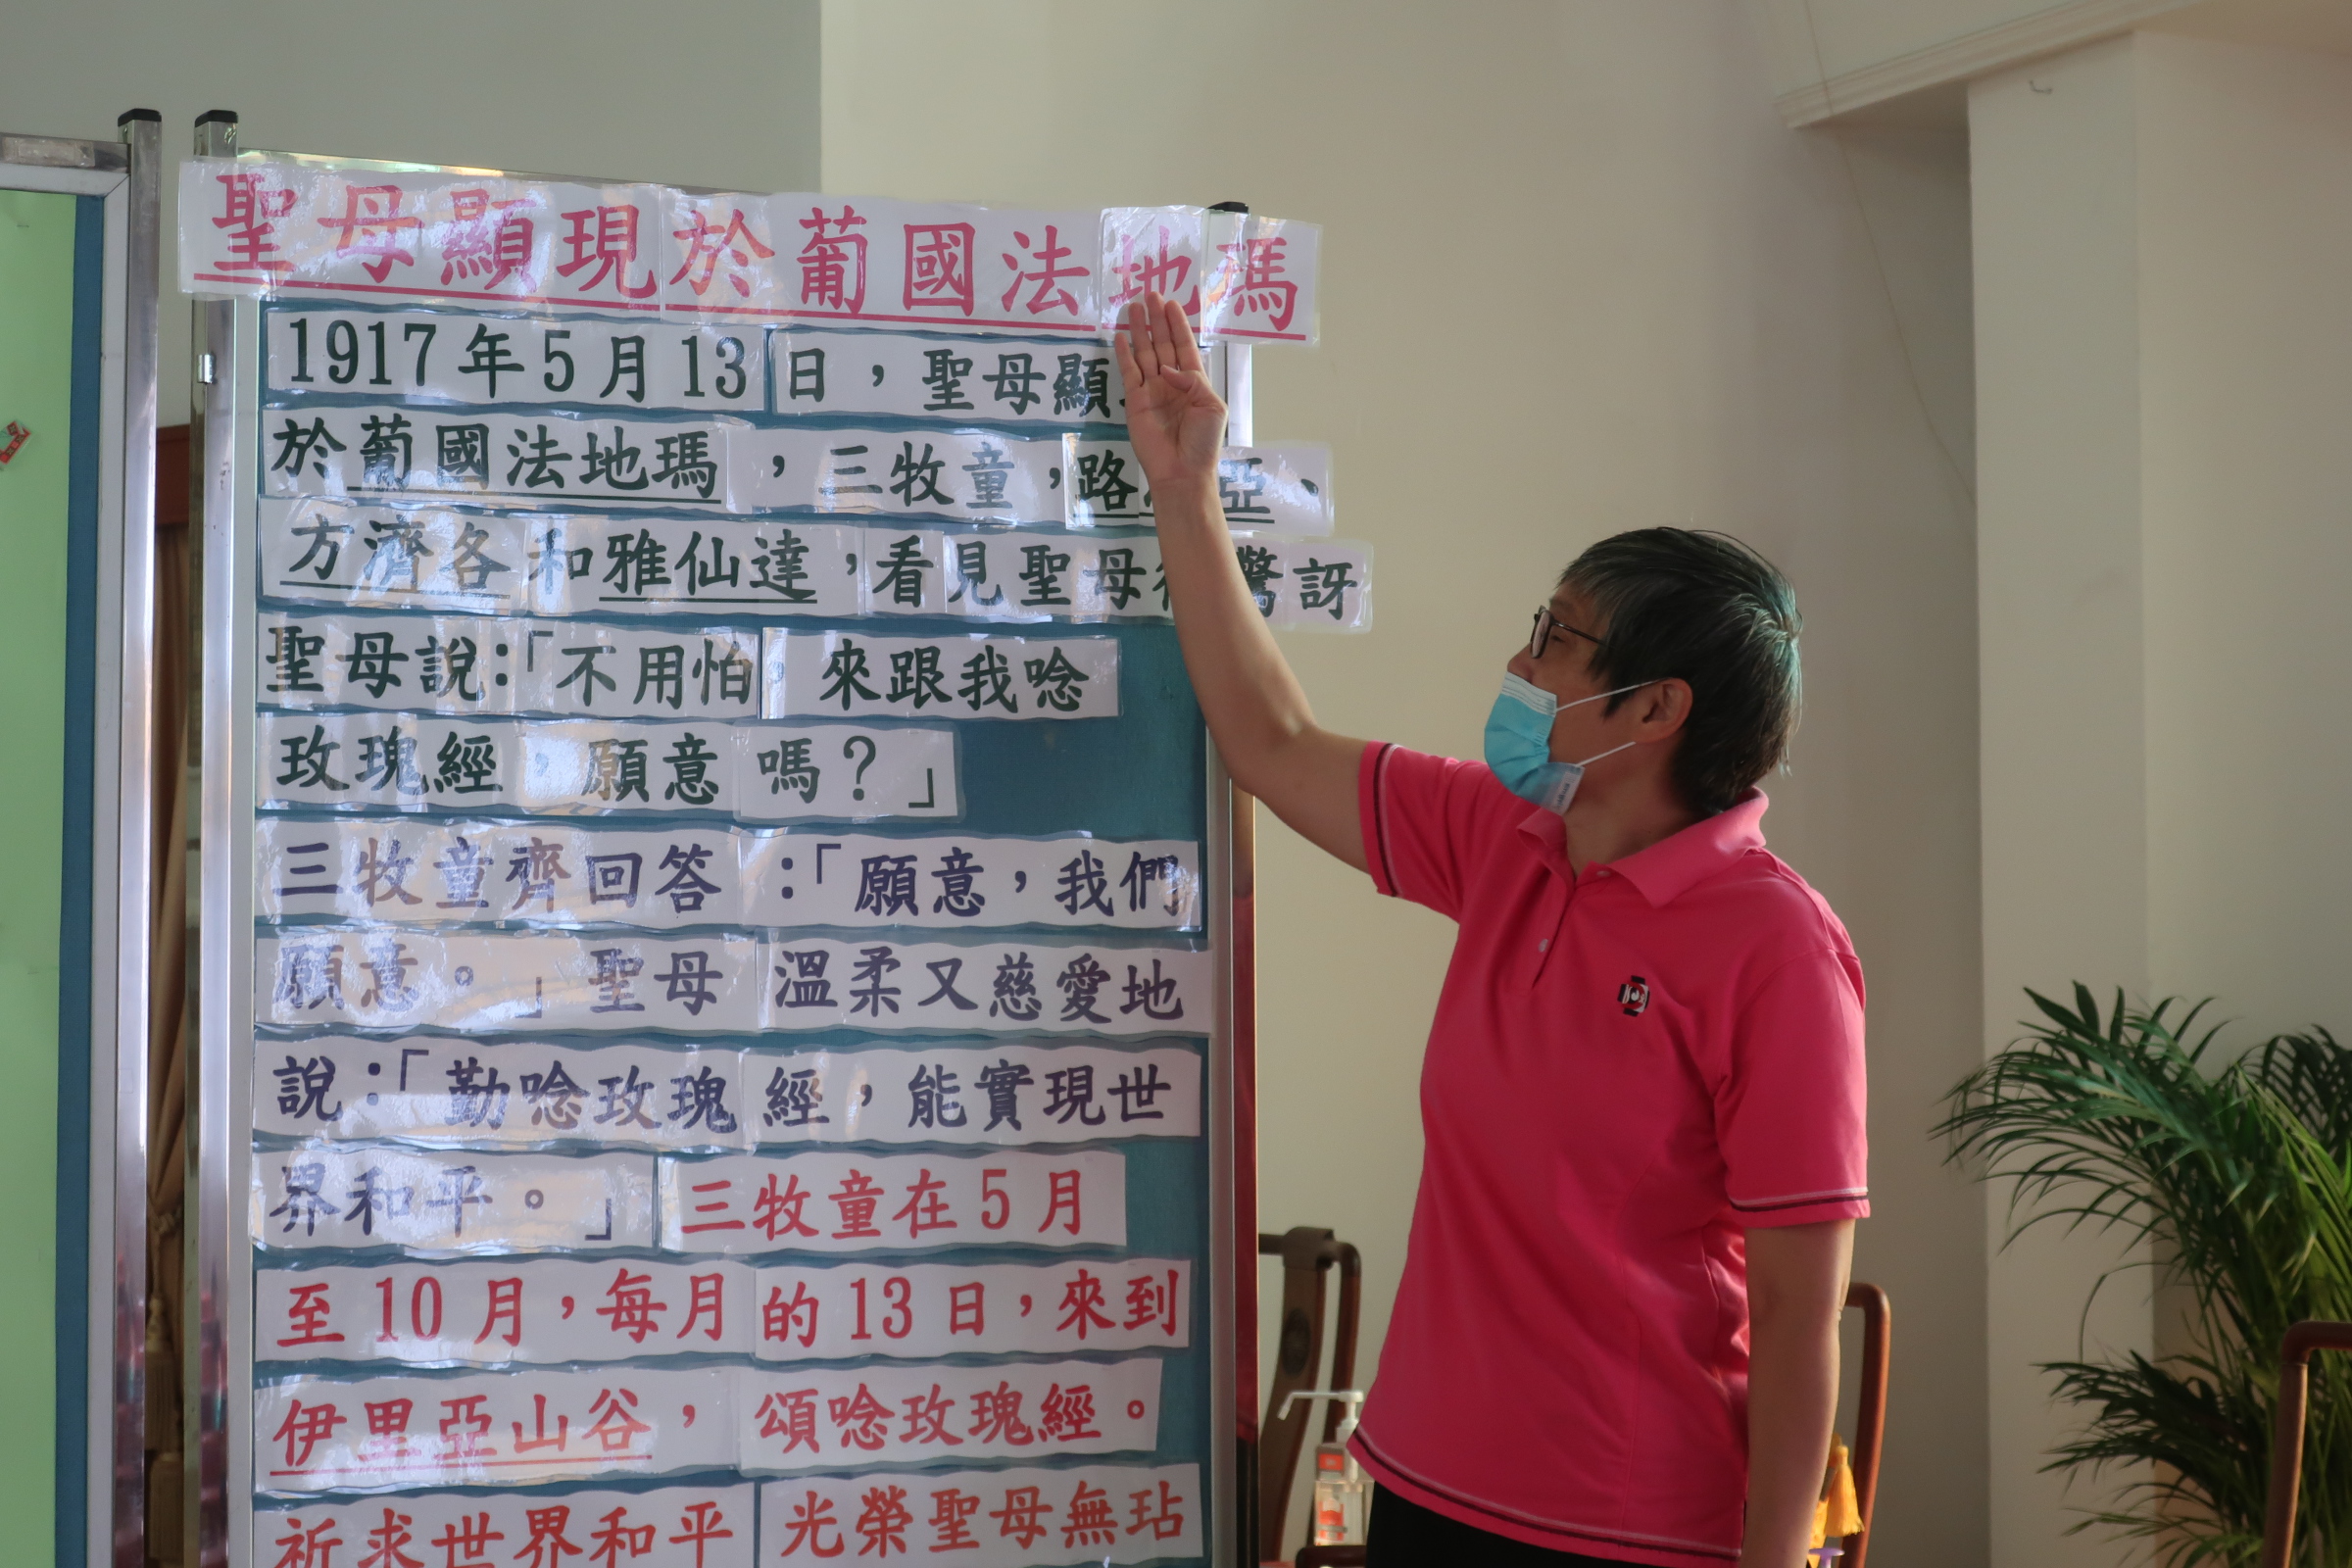 聖母顯現於葡國法地瑪
1917年5月13日，聖母顯
於葡國法地瑪，三牧童，路 亞、
方濟各和雅仙達，看見聖母 驚訝
聖母說：「不用怕。來跟我唸
玫瑰經，願意嗎？」
三牧童齊回答：「願意，我們
願意。」聖母溫柔又慈愛地
說：「勤唸玫瑰經，能實現世
界和平。」三牧童在5月
至10月，每月的13日，來到
伊里亞山谷，頌唸玫瑰經。
祈求世界和平 光榮聖母無玷